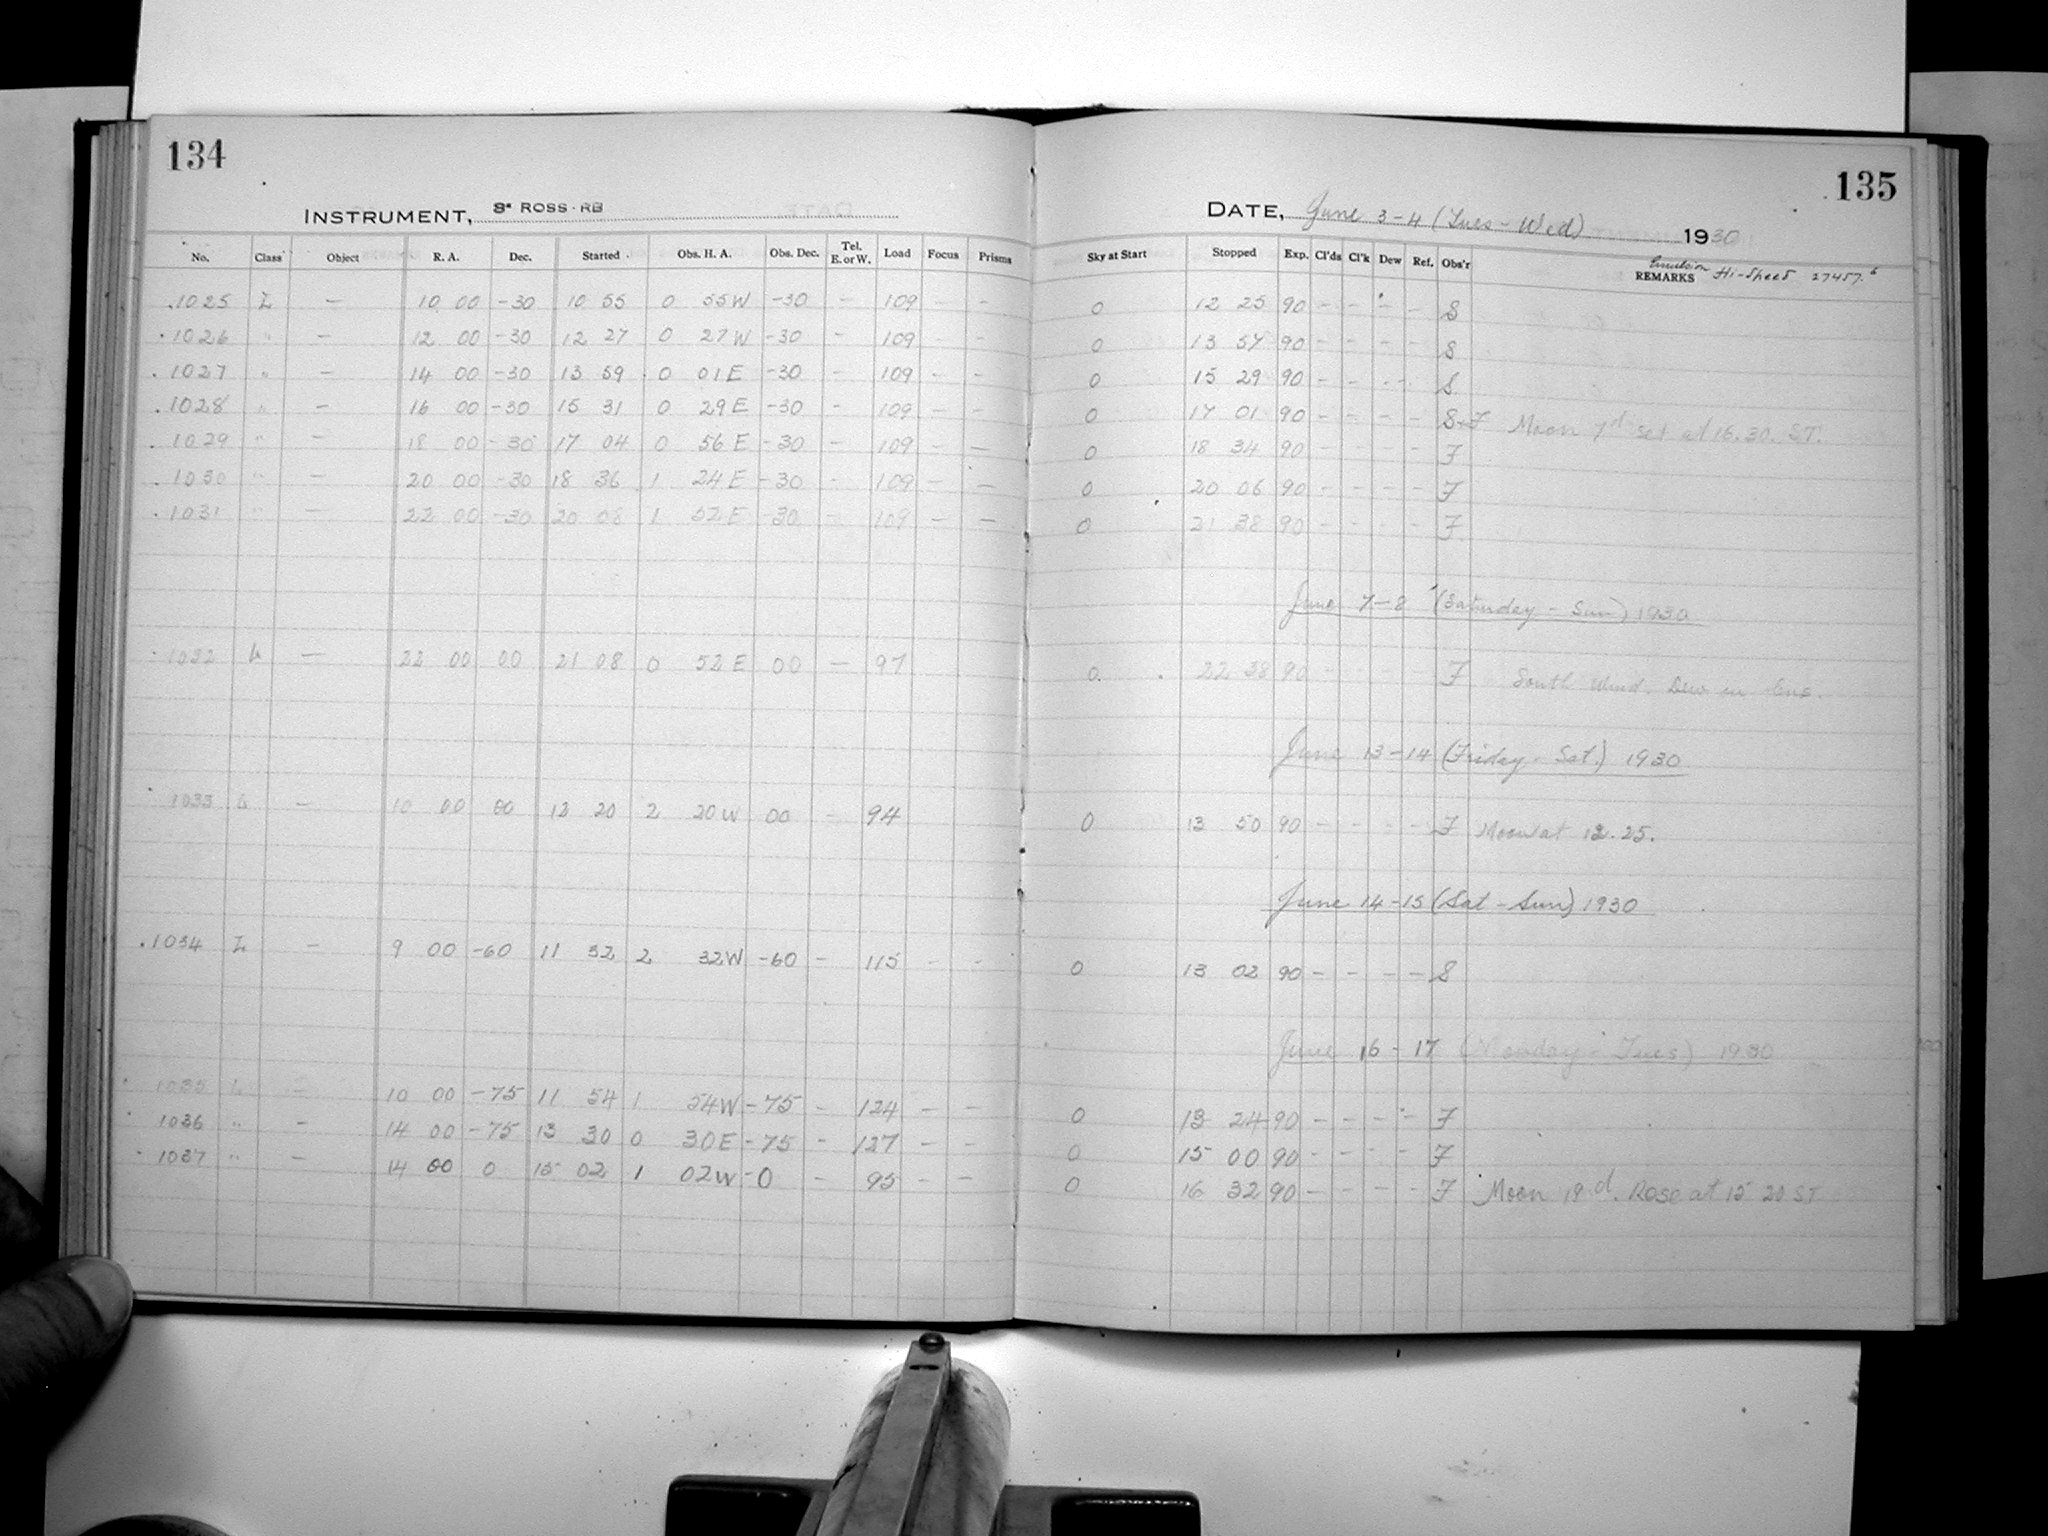 134
INSTRUMENT, 8" ROSS-RB
No. Class Object R. A. Dec. Started Obs. H. A. Obs. Dec. Tel. E. or W. Load Focus Prisms
1025 L — 10 00 -30 10 55 0 55W -30 - 109 - -
1026 " — 12 00 -30 12 27 0 27W -30 - 109 - -
1027 " — 14 00 -30 13 59 0 01E -30 - 109 - -
1028 " — 16 00 -30 15 31 0 29E -30 - 109 - -
1029 " — 18 00 -30 17 04 0 56E -30 - 109 - -
1030 " — 20 00 -30 18 36 1 24E -30 - 109 - -
1031 " — 22 00 -30 20 08 1 52E -30 - 109 - -
1032 L — 22 00 00 21 08 0 52E 00 — 97
1033 L — 10 00 00 12 20 2 20W 00 - 94
1034 L — 9 00 -60 11 32 2 32W -60 - 115 - -
1035 L — 10 00 -75 11 54 1 54W -75 - 124 - -
1036 " — 14 00 -75 13 30 0 30E -75 - 127 - -
1037 " — 14 00 0 15 02 1 02W -0 - 95 - -
135
DATE, June 3-4 (Tues-Wed) 1930
Sky at Start Stopped Exp. Cl'ds Cl'k Dew Ref. Obs'r REMARKS Emulsion Hi-Speed 27457.
0 12 25 90 - - - - S
0 13 57 90 - - - - S
0 15 29 90 - - - - S
0 17 01 90 - - - - S+F Moon 7d set at 16.30. S.T.
0 18 34 90 - - - - F
0 20 06 90 - - - - F
0 21 38 90 - - - - F
June 7-8 (Saturday - Sun) 1930
0 22 38 90 - - - - F South Wind. Dew on lens.
June 13-14 (Friday - Sat.) 1930
0 13 50 90 - - - - F Moon at 12.25.
June 14-15 (Sat - Sun) 1930
0 13 02 90 - - - - S
June 16-17 (Monday - Tues) 1930
0 13 24 90 - - - - F
0 15 00 90 - - - - F
0 16 32 90 - - - - F Moon 19d. Rose at 15 20 ST